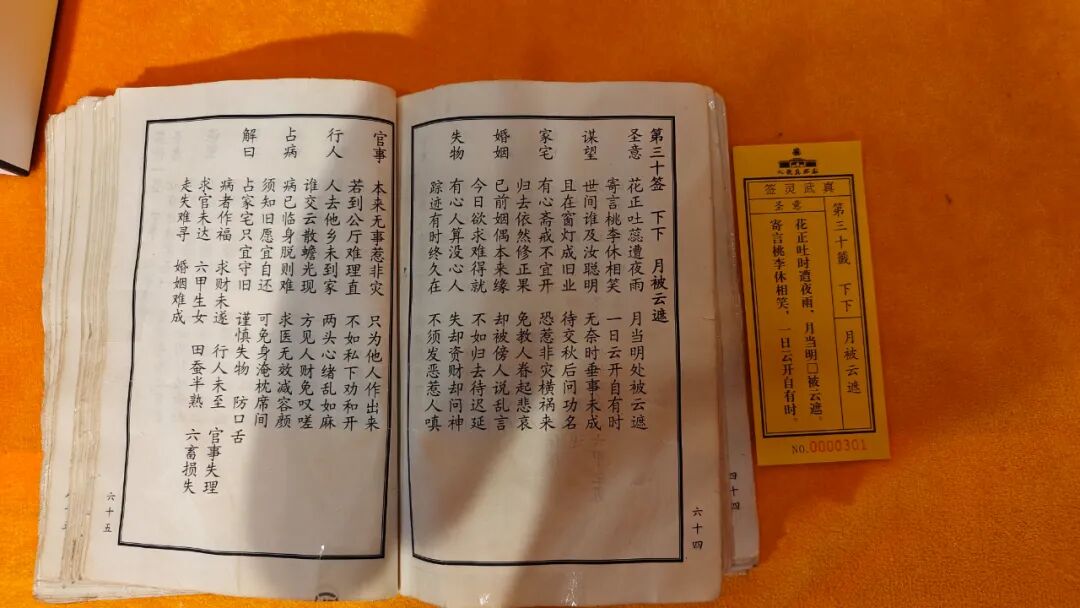 第三十签 下下 月被云遮
圣意 花正吐蕊遭夜雨 月当明处被云遮
寄言桃李休相笑 一日云开自有时
谋望 世间谁及汝聪明 无奈时垂事未成
且在窗灯成旧业 待交秋后问功名
家宅 有心斋戒不宜开 恐惹非灾横祸来
归去依然修正果 免教人眷起悲哀
婚姻 已前姻偶本来缘 却被傍人说乱言
今日欲求难得就 不如归去待迟延
失物 有心人算没心人 失却资财却问神
踪迹有时终久在 不须发恶惹人嗔
六十四
官事 本来无事惹非灾 只为他人作出来
若到公厅难理直 不如私下劝和开
行人 人去他乡未到家 两头心绪乱如麻
谁交云散蟾光现 方见人财免叹嗟
占病 病已临身脱则难 求医无效减容颜
须知旧愿宜自还 可免身淹枕席间
解曰 占家宅只宜守旧 谨慎失物 防口舌
病者作福 求财未遂 行人未至 官事失理
求官未达 六甲生女 田蚕半熟 六畜损失
走失难寻 婚姻难成
六十五
四十四
真武灵签
第三十籤 下下 月被云遮
圣意
花正吐时遭夜雨,月当明□被云遮。
寄言桃李休相笑,一日云开自有时。
NO.0000301